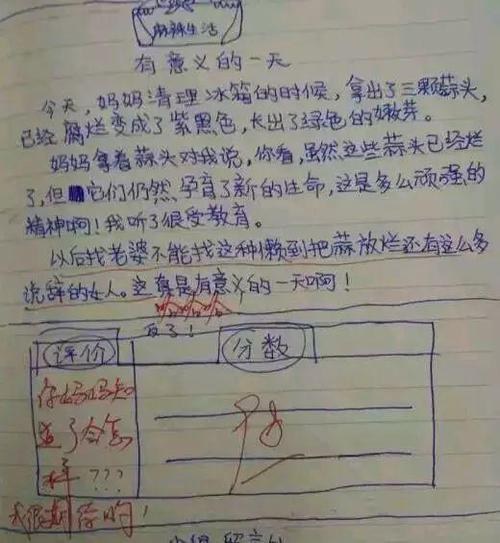 麻辣生活
有意义的一天
今天，妈妈清理冰箱的时候，拿出了三颗蒜头，
已经腐烂变成了紫黑色，长出了绿色的嫩芽。
妈妈拿着蒜头对我说，你看，虽然这些蒜头已经烂
了，但它们仍然孕育了新的生命，这是多么顽强的
精神啊！我听了很受教育。
以后找老婆不能找这种懒到把蒜放烂还有这么多
说辞的女人。这真是有意义的一天啊！
哈哈哈哈
反了！
评价
分数
你妈妈知
道了会怎
样？？？
我很期待哟！